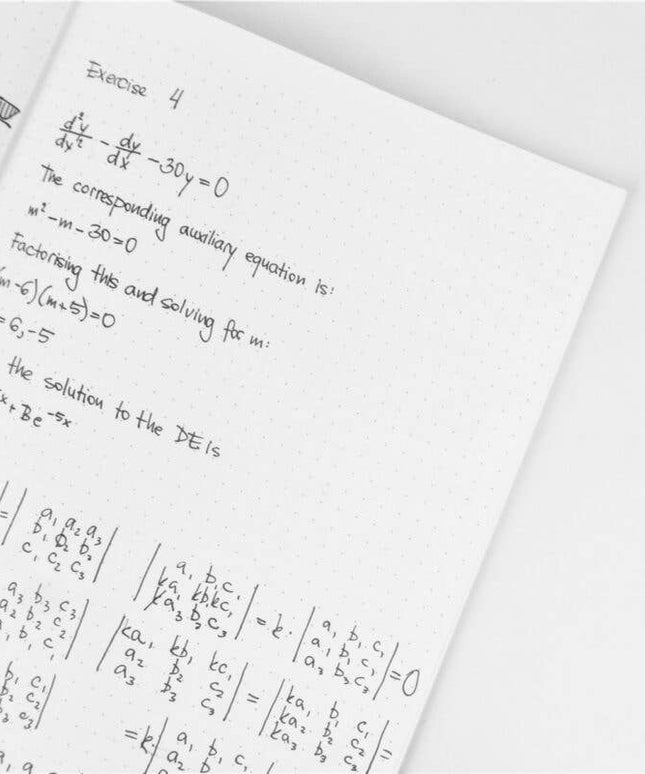 Exercise 4
d²y/dy² - dy/dx - 30y = 0
The corresponding auxiliary equation is:
m² - m - 30 = 0
Factorising this and solving for m:
(m-6)(m+5) = 0
= 6, -5
the solution to the DE is
x + Be^-5x
= | a₁ a₂ a₃
b₁ b₂ b₃
c₁ c₂ c₃ |
a₃ b₃ c₃
a₂ b₂ c₂
a₁ b₁ c₁ |
b₁ c₁
b₂ c₂
b₃ c₃ |
| a₁ b₁ c₁
ka₁ kb₁ kc₁
ka₃ b₃ c₃ | = k · | a₁ b₁ c₁
a₁ b₁ c₁
a₃ b₃ c₃ | = 0
| ka₁ kb₁ kc₁
a₂ b₂ c₂
a₃ b₃ c₃ | = | ka₁ b₁ c₁
ka₂ b₂ c₂
ka₃ b₃ c₃ | =
= k · | a₁ b₁ c₁
a₂ b